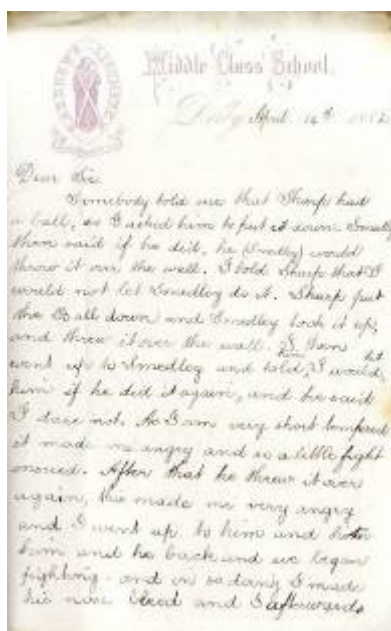 Middle Class School.
April 14th 1882
Dear Sir
Somebody told me that Sharp had
a ball, so I asked him to put it down. Smedley
then said if he did, he (Smedley) would
throw it over the wall. I told Sharp that I
would not let Smedley do it. Sharp put
the Ball down and Smedley took it up,
and threw it over the wall. I then
went up to Smedley and told him I would hit
him if he did it again, and he said
I dare not. As I am very short tempered
it made me angry and so a little fight
ensued. After that he threw it over
again, this made me very angry
and I went up to him and
him and he back and we began
fighting and in so doing I made
his nose bleed and I afterwards